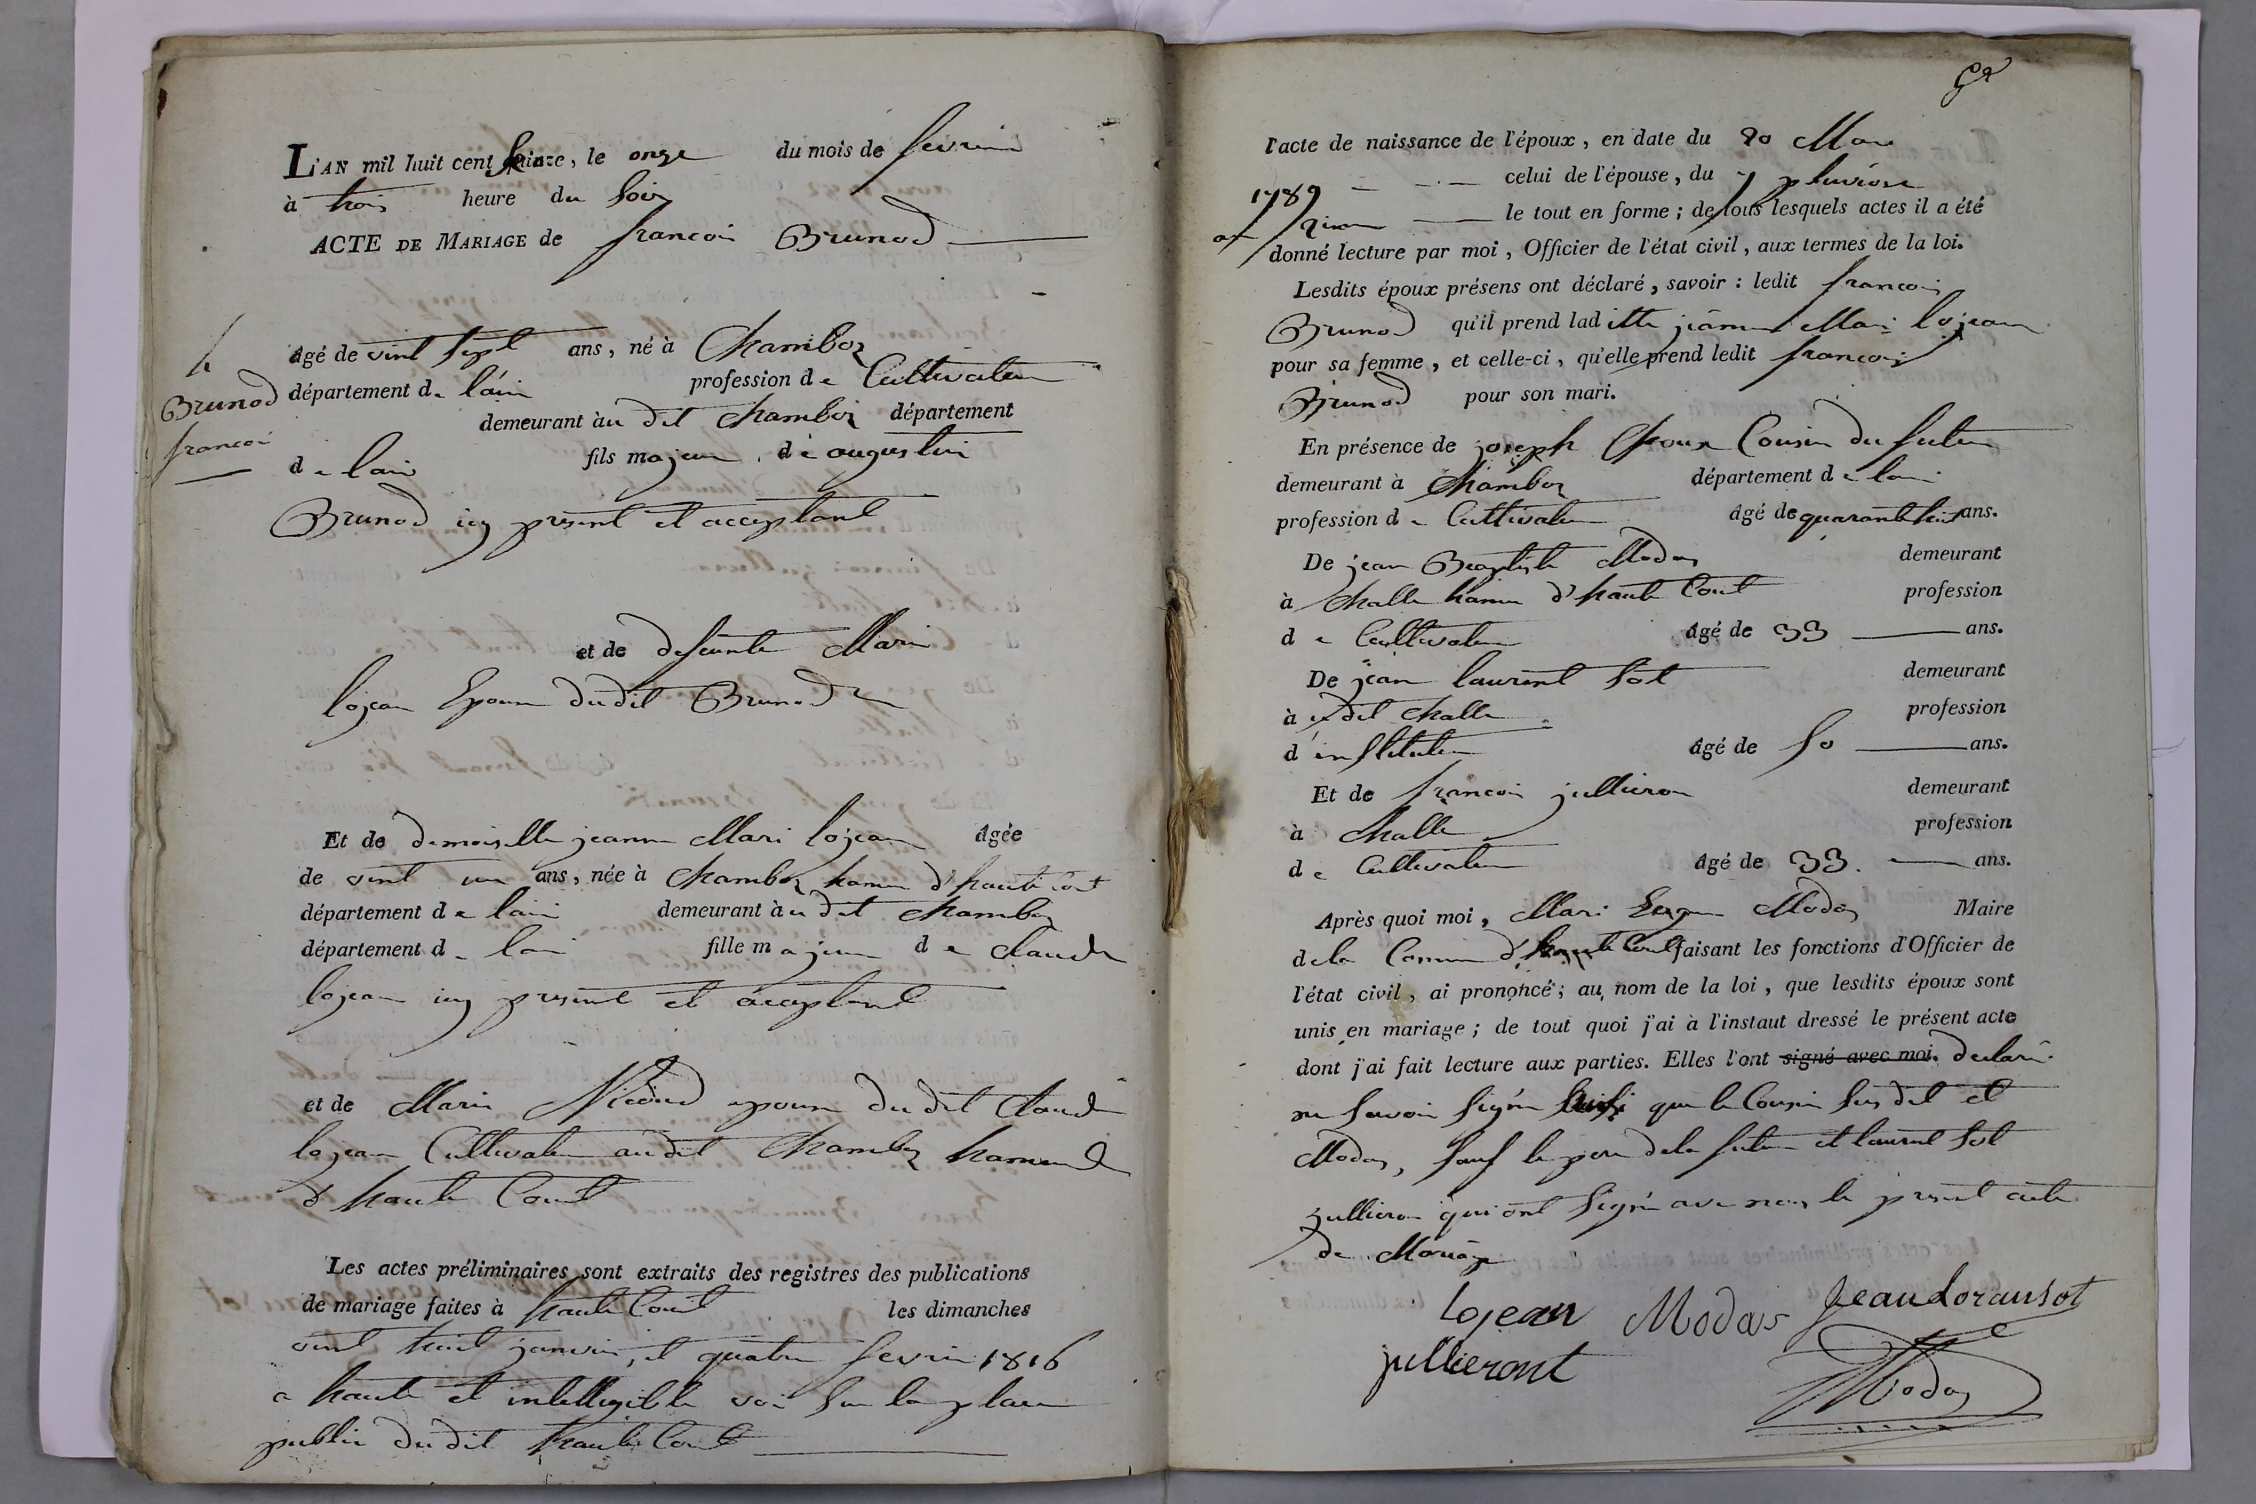 L'AN mil huit cent seize, le onze du mois de fevrier
à trois heure du soir
ACTE DE MARIAGE de francois Brunod
âgé de vint sept ans, né à Chamboz
4
Brunod
francoi
département de l'ain profession de Cultivateur
demeurant àu dit chamboz département
de lain fils majeur de augustin
Brunod icy present et acceptant
et de defeunte Marie
lojean Epouse dudit Brunod
Et de demoiselle jeanne Mari lojean âgée
de vint un ans, née à chamboz hamau d'hautecourt
département de lain demeurant àu dit chamboz
département de lain fille majeure de claude
lojean icy present et acceptant
et de Marie Nicoud epouse du dit Claude
lojean Cultivateur audit Chamboz hameau
d'haute Court
Les actes préliminaires sont extraits des registres des publications
de mariage faites à haute Court les dimanches
vint huit janvier, et quatre fevrier 1816
a haute et intelligible voi sur la place
public du dit haute Court
l'acte de naissance de l'époux, en date du 20 Mars
1789 celui de l'épouse, du 7 pluviose
le tout en forme; de tous lesquels actes il a été
donné lecture par moi, Officier de l'état civil, aux termes de la loi.
Lesdits époux présens ont déclaré, savoir: ledit francois
Brunod qu'il prend laditte jeanne Mari lojean
pour sa femme, et celle-ci, qu'elle prend ledit francois
Brunod pour son mari.
En présence de joseph Cousin du futur
demeurant à Chamboz département de lain
profession de Cultivateur âgé de quarante huit ans.
De jean Baptiste Modas demeurant
à challe hamau d'haute Court profession
de Cultivateur âgé de 33 ans.
De jean laurent sot demeurant
à udit challe profession
d'instituteur âgé de 50 ans.
Et de francois jullieron demeurant
à challe profession
de Cultivateur âgé de 33 ans.
Après quoi moi, Mari Eugene Modas Maire
dela Commune d'haute Court faisant les fonctions d'Officier de
l'état civil, ai prononcé; au nom de la loi, que lesdits époux sont
unis en mariage; de tout quoi j'ai à l'instant dressé le présent acte
dont j'ai fait lecture aux parties. Elles l'ont signé avec moi. declaré
ne savoir signer aussi que le Cousin sus dit et
Modas, sauf le pere dela future et laurent sot
jullieron qui ont signé avec nous le present acte
de Mariage
lojean Modas jeandoransot
jullieront Modas